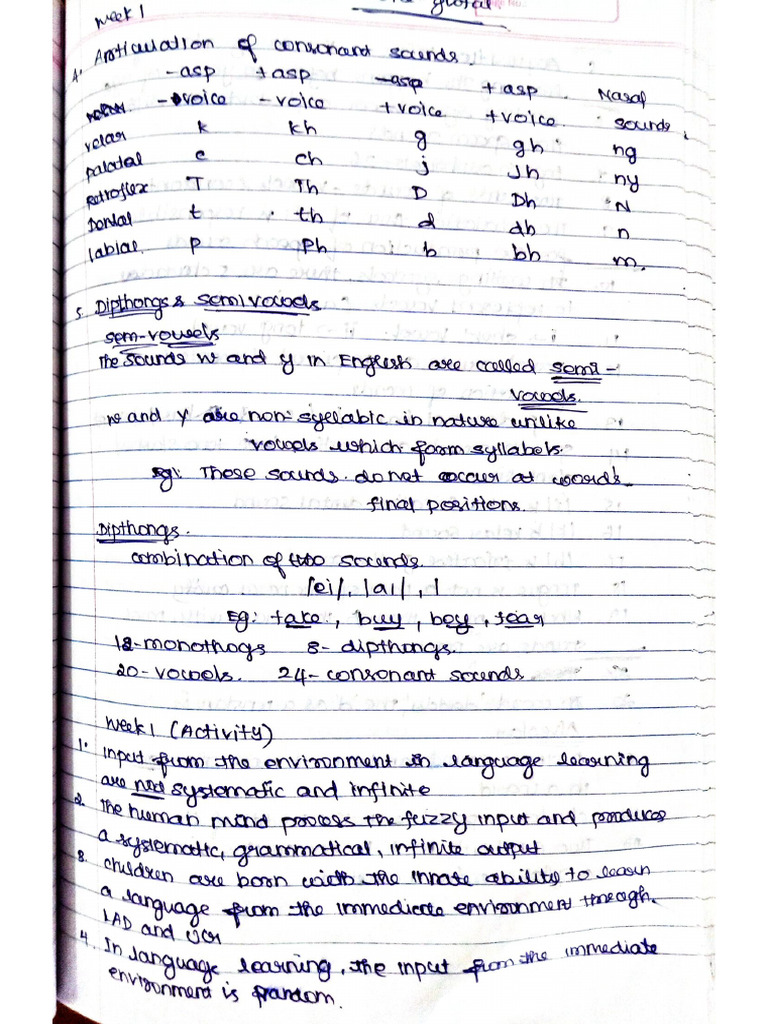 Week 1
global.
4. Articulation of consonant sounds.
-asp +asp -asp +asp Nasal
-voice -voice +voice +voice sounds
velar k kh g gh ng
palatal c ch j Jh ny
Retroflex T Th D Dh N
Dental t th d dh n
labial. p ph b bh m.
5. Dipthongs & semivowels
sem-vowels
The sounds w and y in English are called semi-
vowels.
w and y are non-syllabic in nature unlike
vowels which form syllabels.
eg: These sounds do not occur at words
final positions.
Dipthongs.
combination of two sounds.
/ei/, /ai/, /
Eg: take, buy, boy, fear
12-monothogs 8-dipthongs.
20-vowels. 24-consonant sounds
Week 1 (Activity)
1. Input from the environment in language learning
are not systematic and infinite
2. The human mind process the fuzzy input and produces
a systematic, grammatical, infinite output
3. children are born with the innate ability to learn
a language from the immediate environment through.
LAD and UG
4. In language learning, the input from the immediate
environment is random.